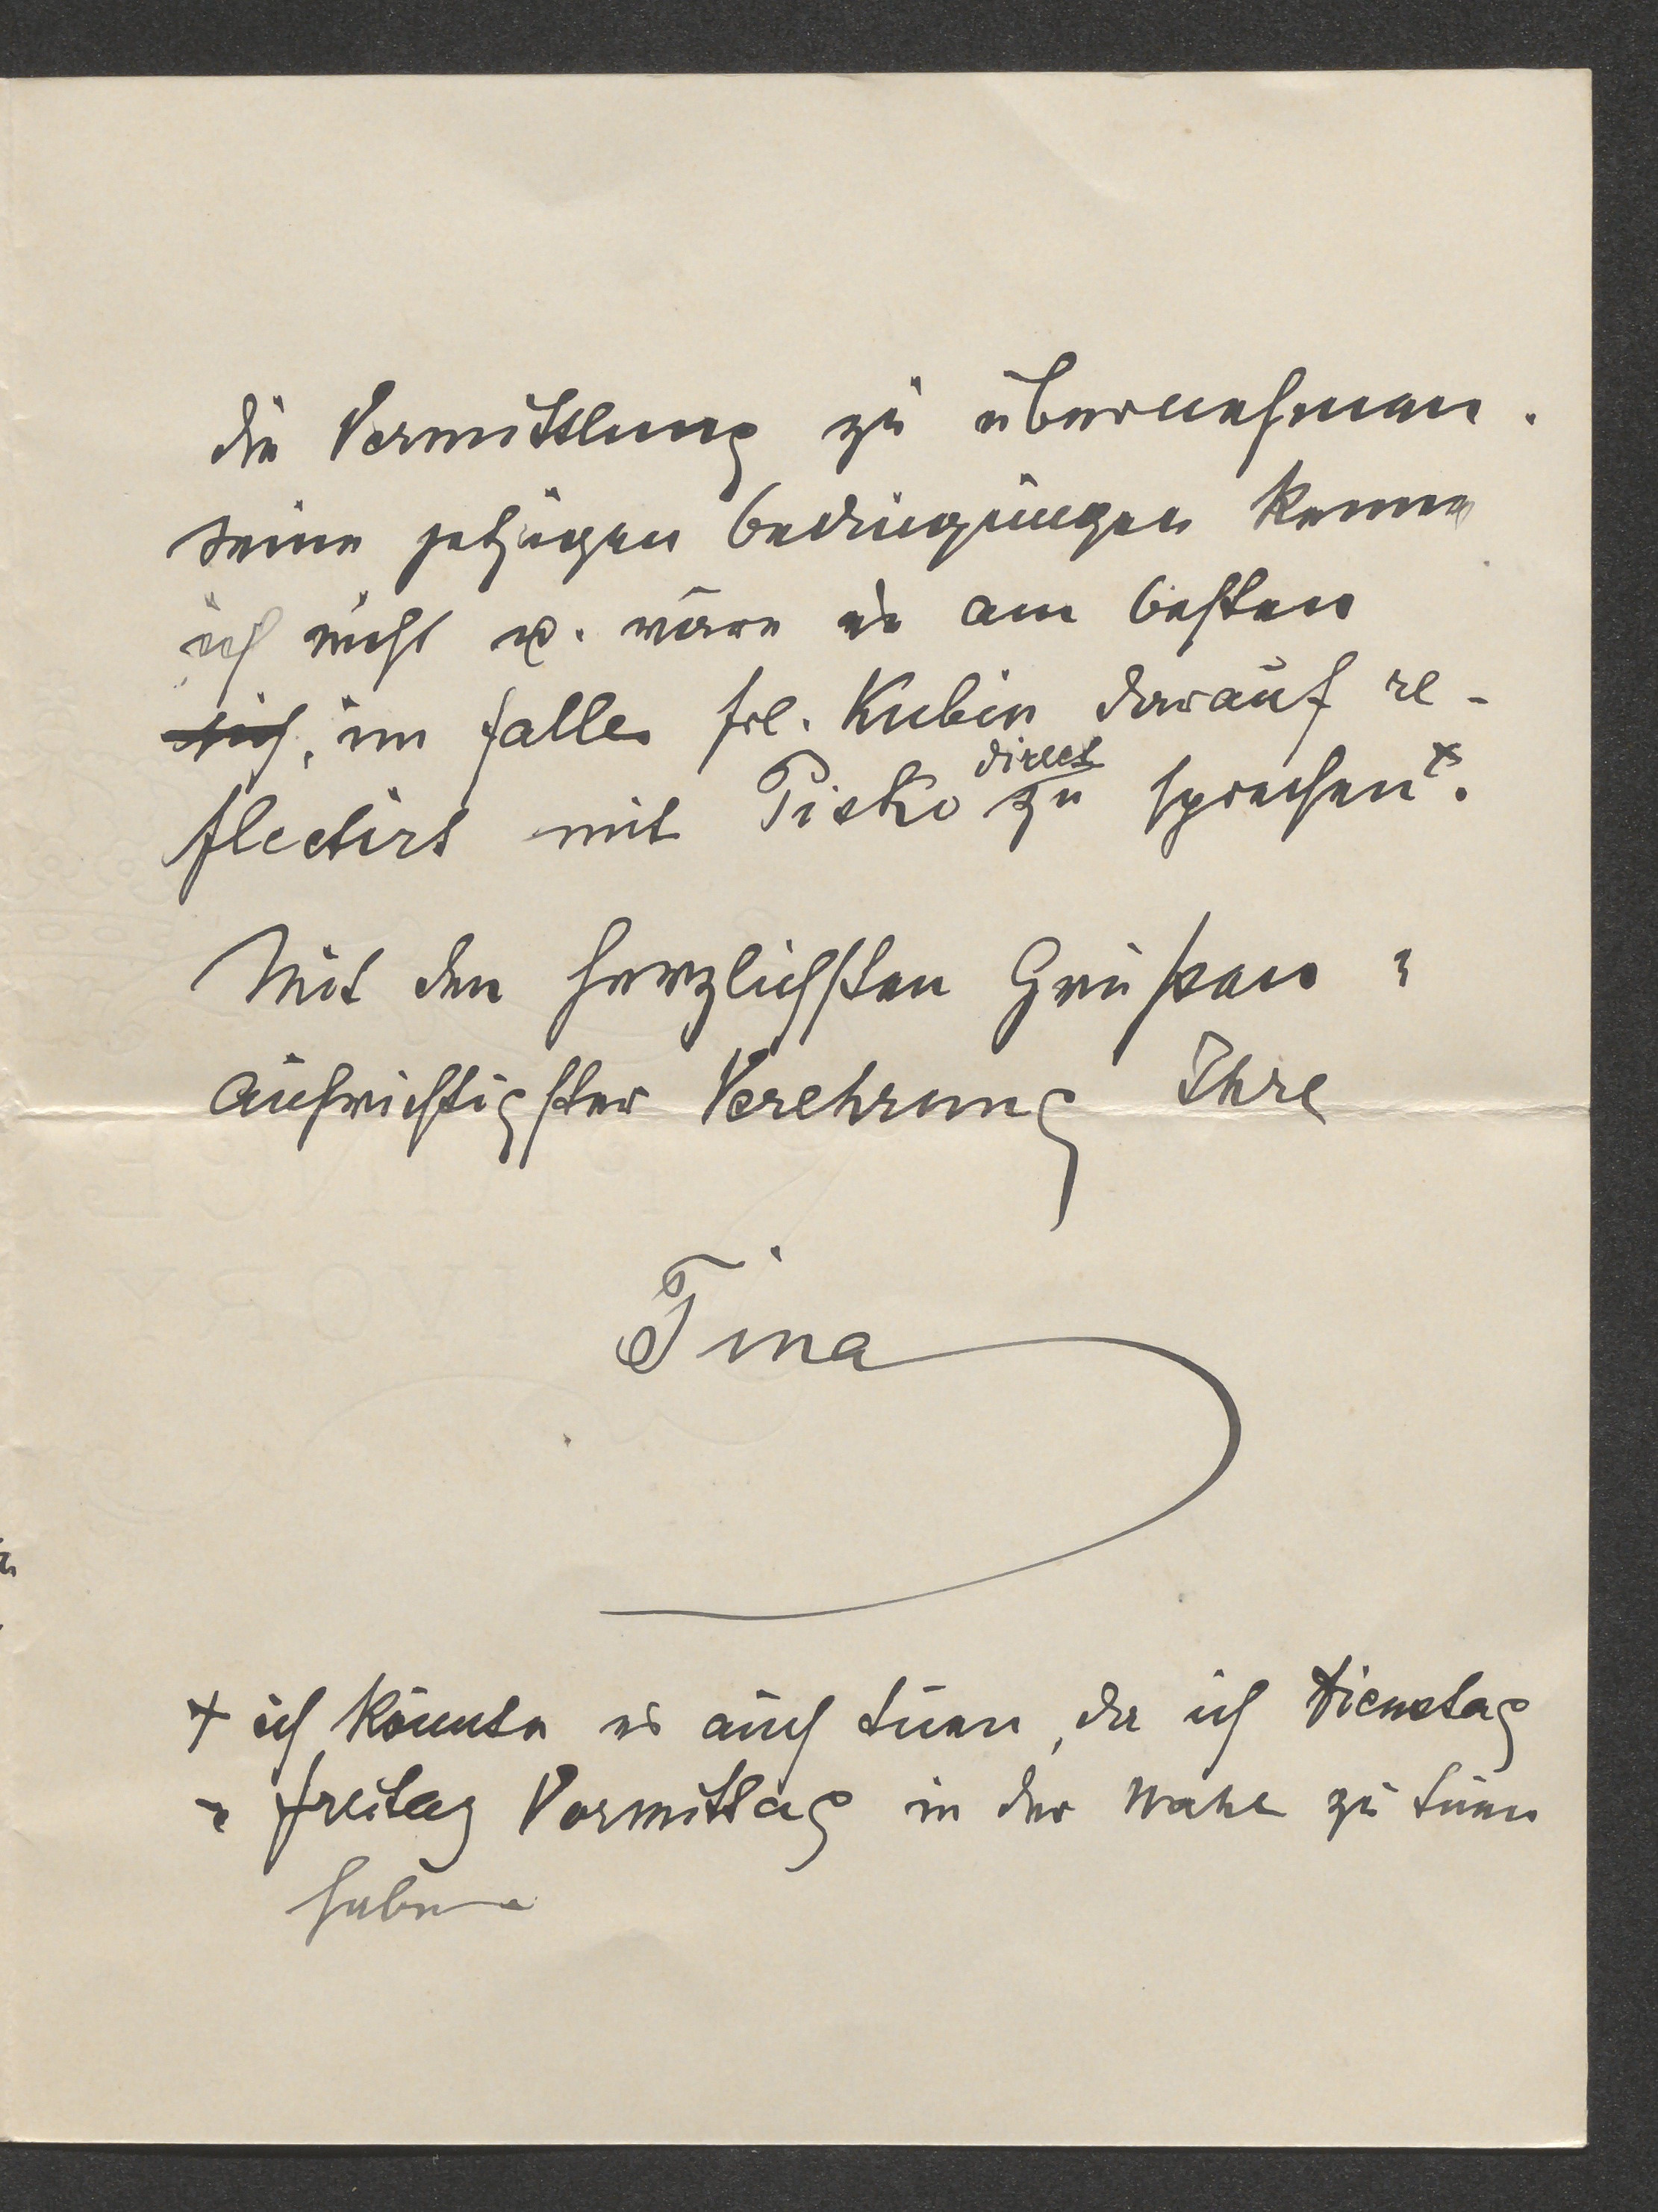 die Vermittlung zu übernehmen.
Seine jetzigen Bedingungen kenne
ich nicht u. wäre es am besten
sich, im Falle Frl. Kubin darauf re-
flectirt mit Pisko direct zu sprechen +.
Mit den herzlichsten Grüßen u
aufrichtigster Verehrung Ihre
Tina
+ ich könnte es auch tuen, da ich Dienstag
u Freitag Vormittag in der Nähe zu tuen
habe